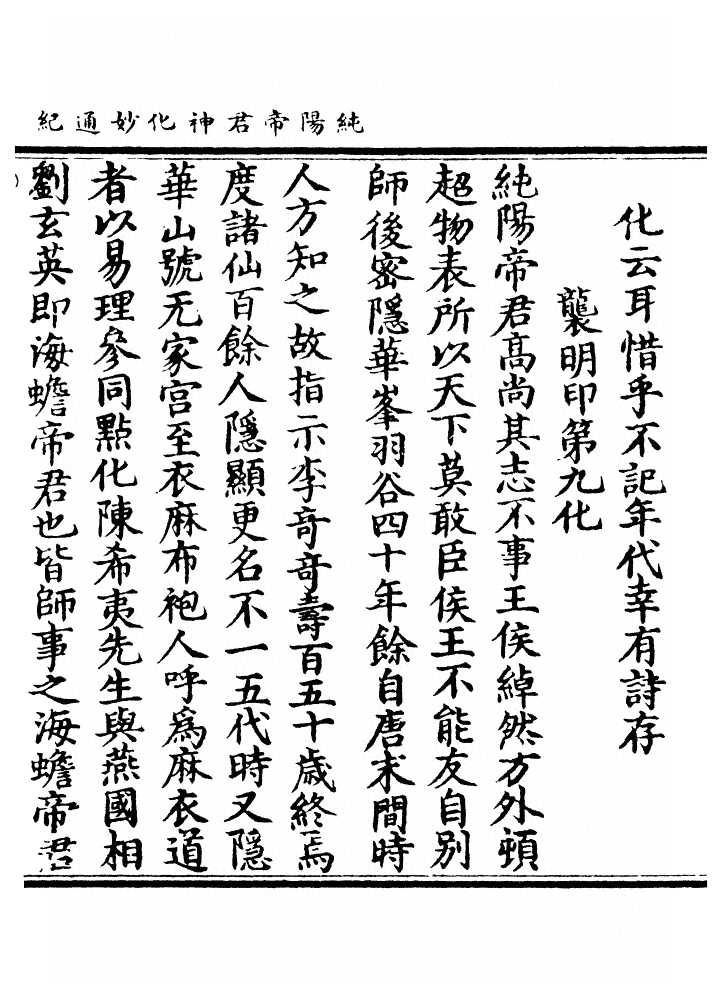 純陽帝君神化妙通紀
化云耳惜乎不記年代幸有詩存
襲明印第九化
純陽帝君高尚其志不事王侯綽然方外頓
超物表所以天下莫敢臣侯王不能友自別
師後密隱華峯羽谷四十年餘自唐末間時
人方知之故指示李奇奇壽百五十歲終焉
度諸仙百餘人隱顯更名不一五代時又隱
華山號无家宫至衣麻布袍人呼為麻衣道
者以易理參同點化陳希夷先生與燕國相
劉玄英即海蟾帝君也皆師事之海蟾帝君